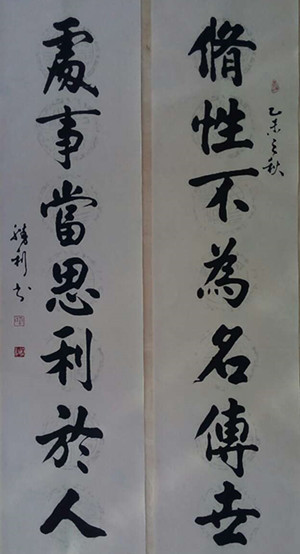 脩性不為名傳世
乙未之秋
處事當思利於人
勝利书